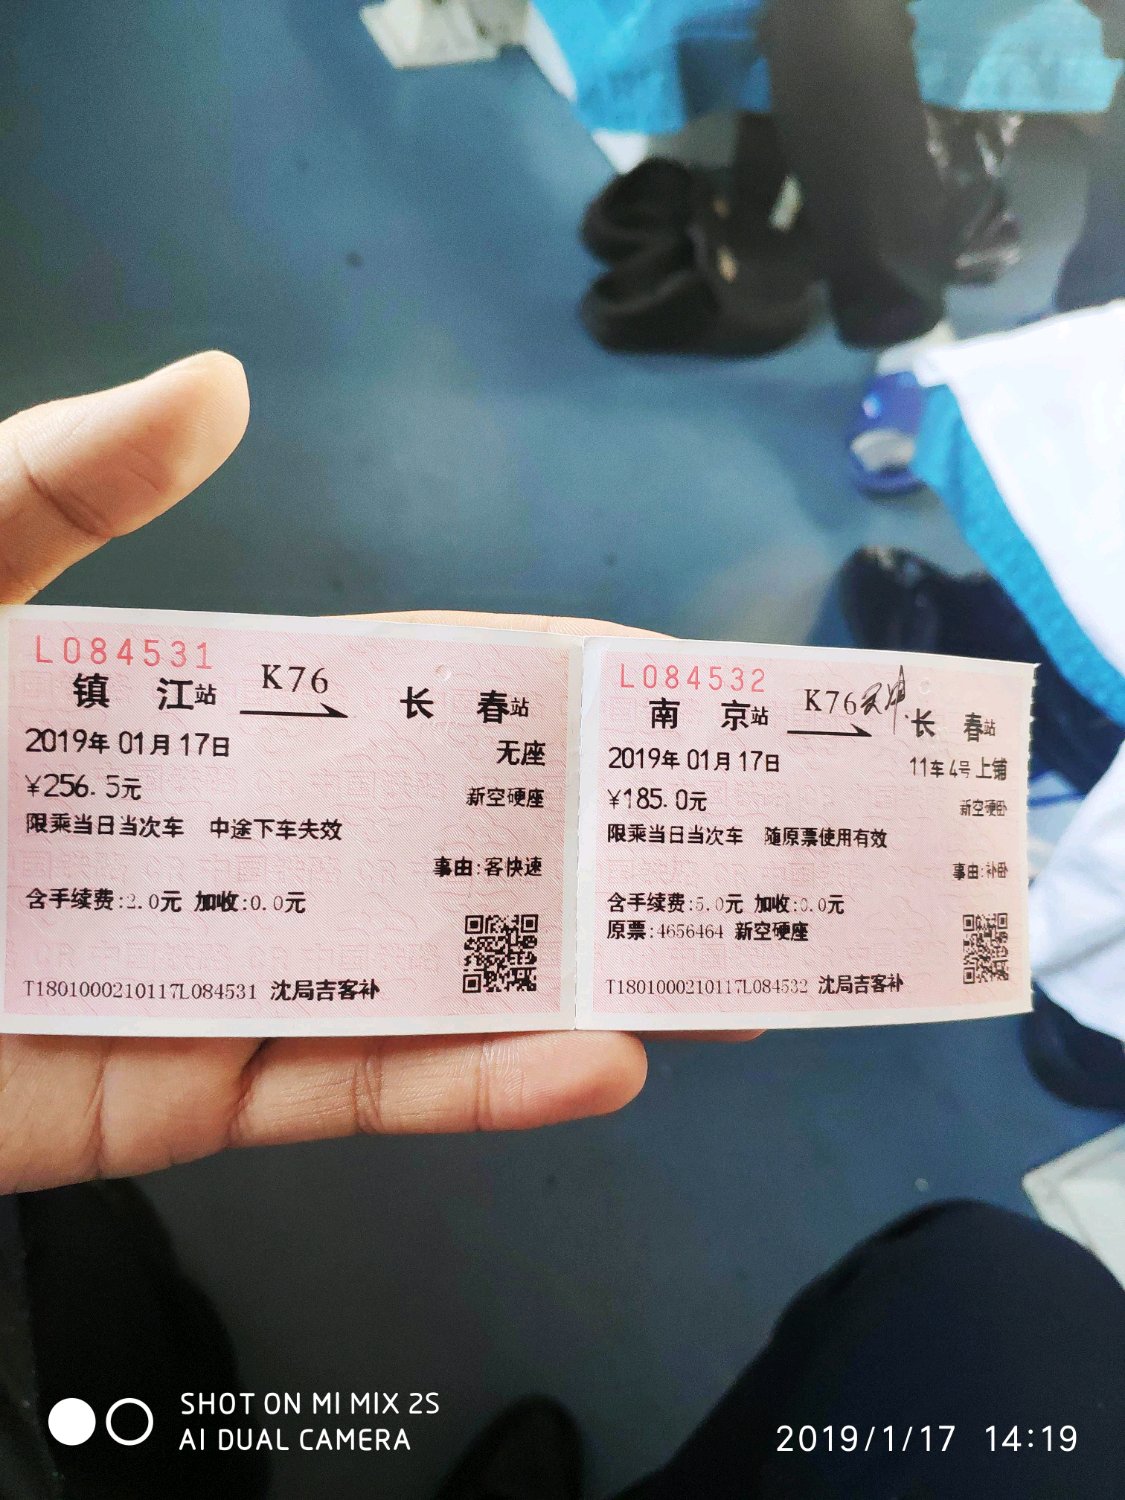 L084531
镇江站 K76 长春站
2019年01月17日 无座
¥256.5元 新空硬座
限乘当日当次车 中途下车失效
事由:客快速
含手续费:2.0元 加收:0.0元
T1801000210117L084531 沈局吉客补
L084532
南京站 K76 长春站
2019年01月17日 11车4号上铺
¥185.0元 新空硬卧
限乘当日当次车 随原票使用有效
事由:补卧
含手续费:5.0元 加收:0.0元
原票:4656464 新空硬座
T1801000210117L084532 沈局吉客补
SHOT ON MI MIX 2S
AI DUAL CAMERA
2019/1/17 14:19